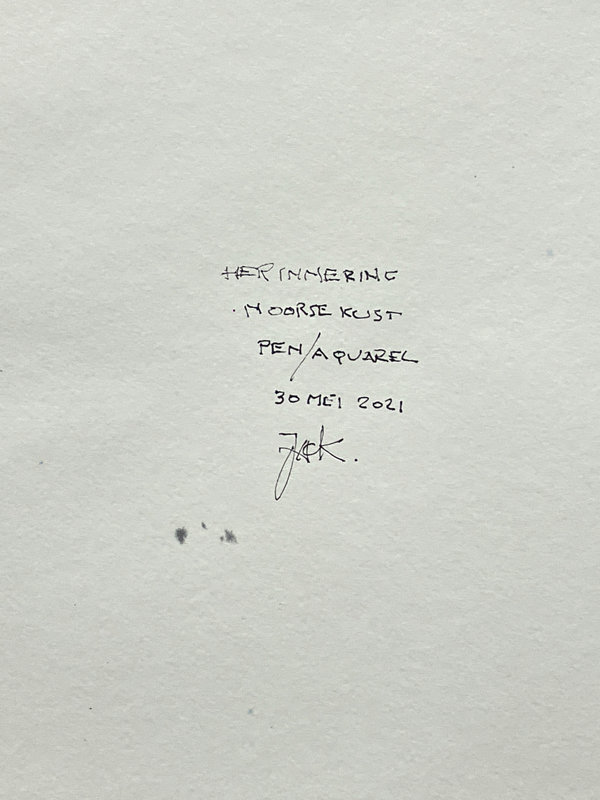 HERINNERING
NOORSE KUST
PEN/AQUAREL
30 MEI 2021
Jack.